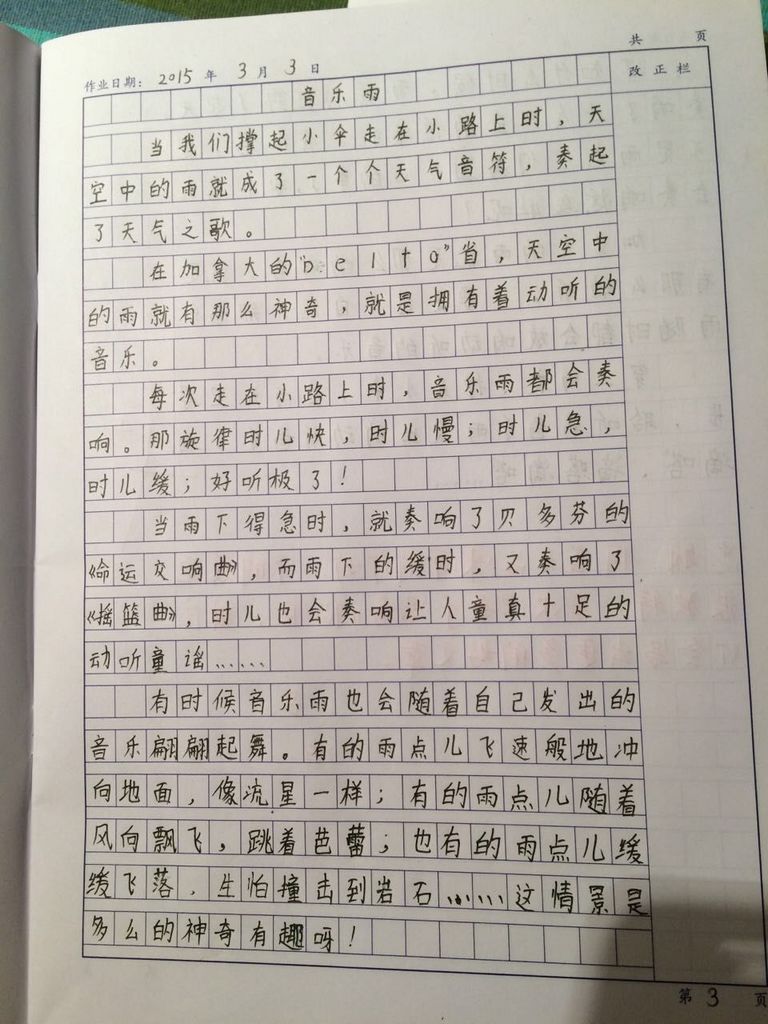 共 页
作业日期： 2015 年 3 月 3 日
改正栏
音乐雨
当我们撑起小伞走在小路上时，天
空中的雨就成了一个个天气音符，奏起
了天气之歌。
在加拿大的"belto"省，天空中
的雨就有那么神奇，就是拥有着动听的
音乐。
每次走在小路上时，音乐雨都会奏
响。那旋律时儿快，时儿慢；时儿急，
时儿缓；好听极了！
当雨下得急时，就奏响了贝多芬的
《命运交响曲》，而雨下的缓时，又奏响了
《摇篮曲》，时儿也会奏响让人童真十足的
动听童谣……
有时候音乐雨也会随着自己发出的
音乐翩翩起舞。有的雨点儿飞速般地冲
向地面，像流星一样；有的雨点儿随着
风向飘飞，跳着芭蕾；也有的雨点儿缓
缓飞落，生怕撞击到岩石……这情景是
多么的神奇有趣呀！
第 3 页